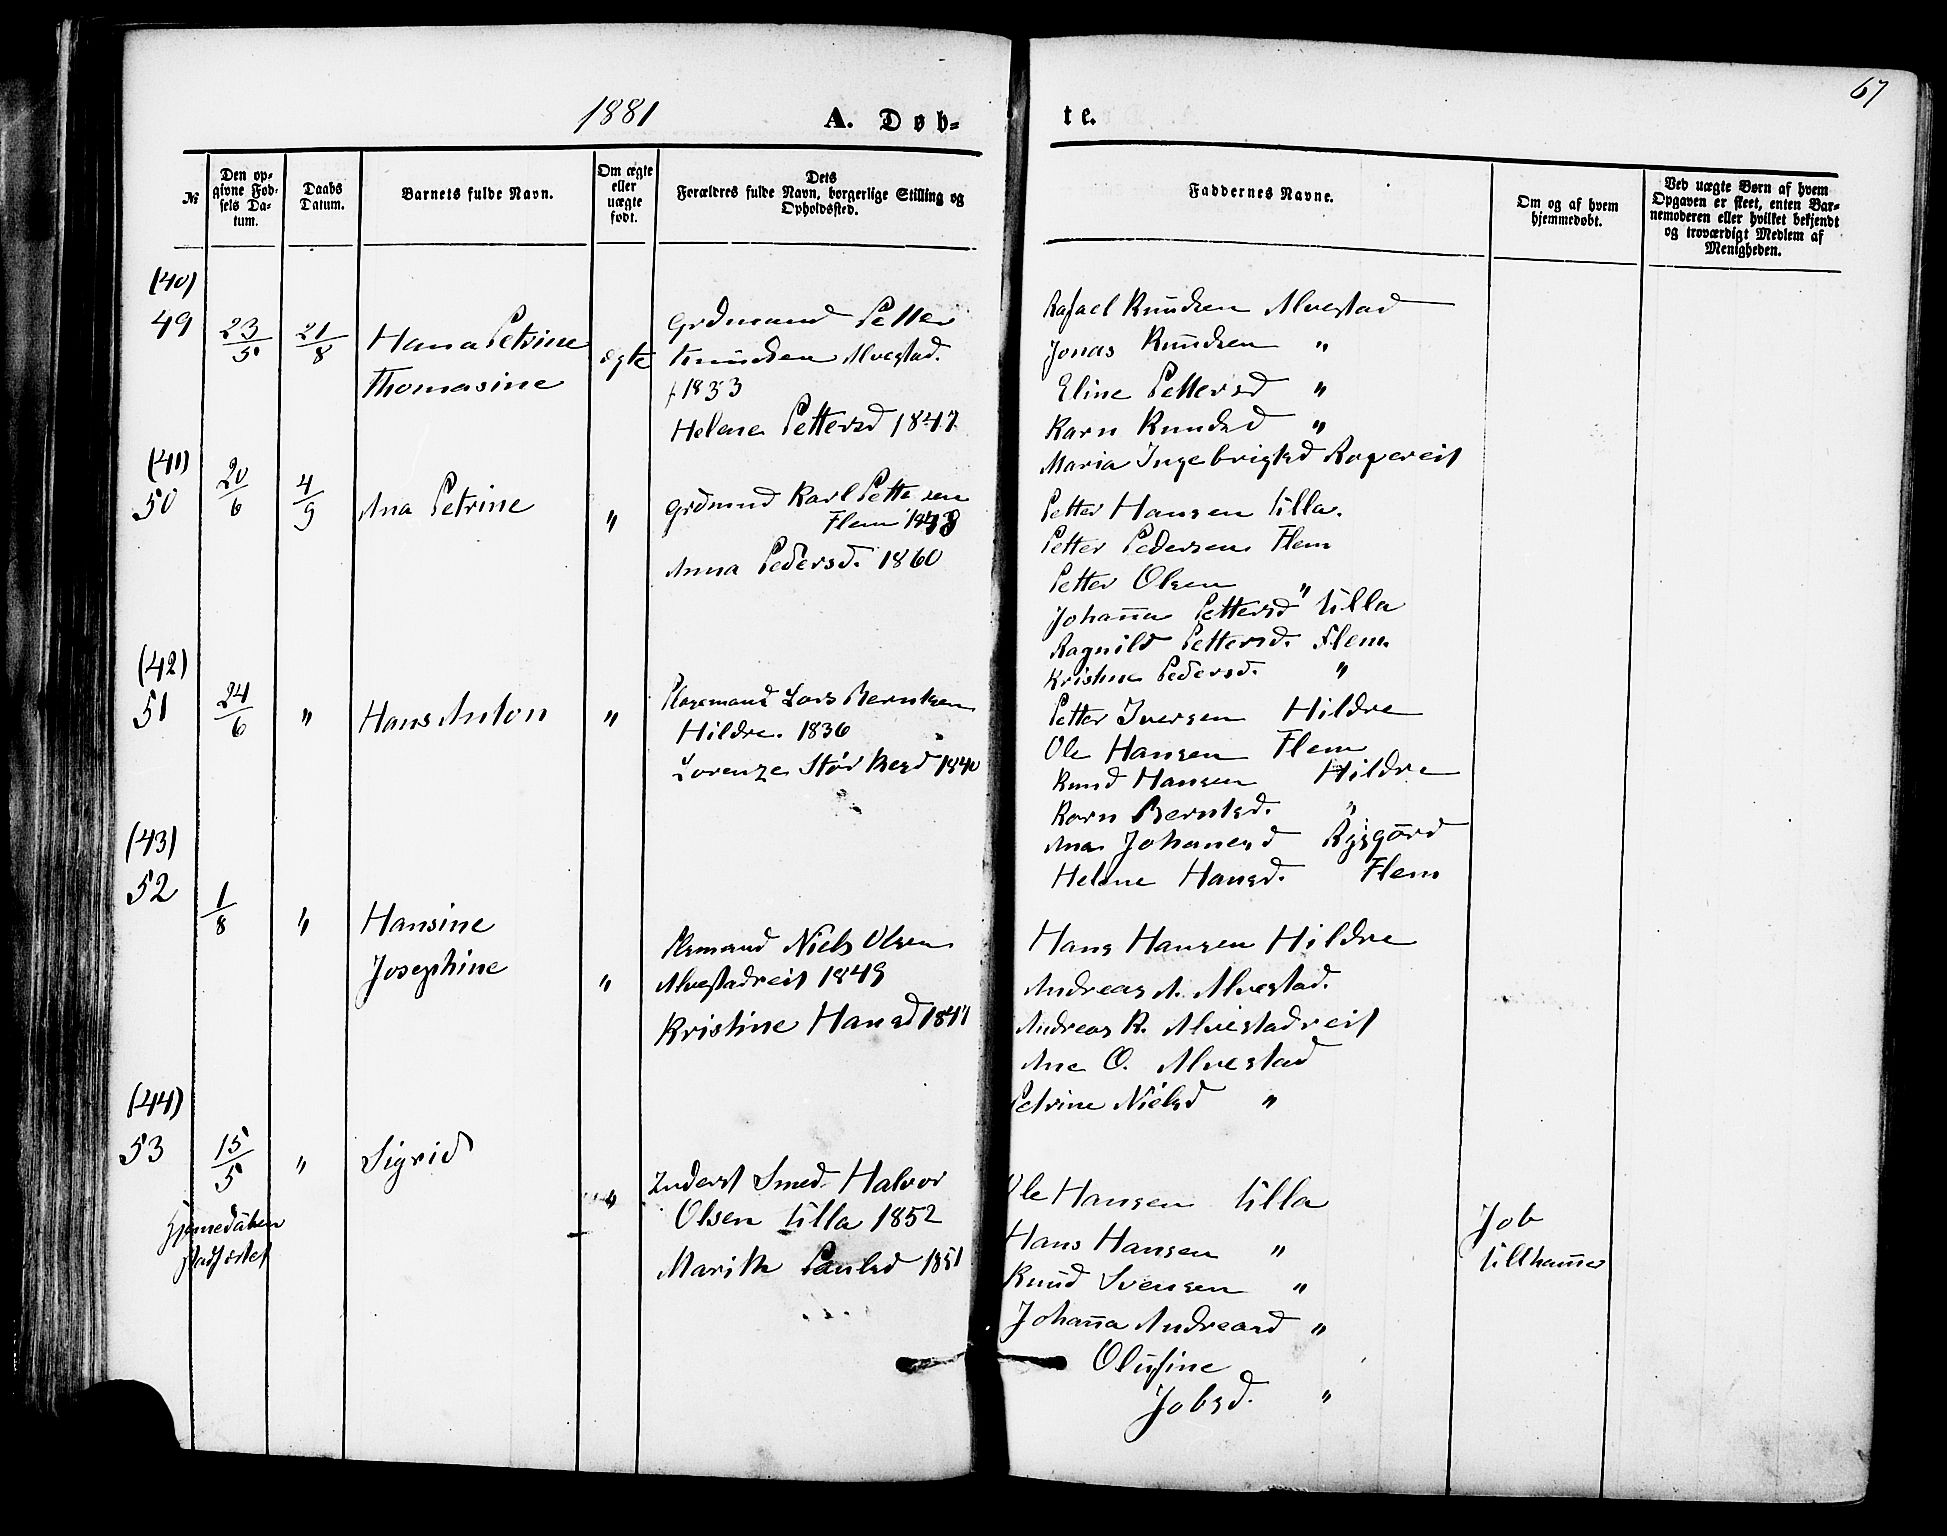 67
1881 A. Døb-
te.
№
Den op-
givne Fød-
sels Da-
tum.
Daabs
Datum.
Barnets fulde Navn.
Om ægte
eller
uægte
født.
Dets
Forældres fulde Navn, borgerlige Stilling og
Opholdssted.
Faddernes Navne.
Om og af hvem
hjemmedøbt.
Ved uægte Børn af hvem
Opgaven er skeet, enten Bar-
nemoderen eller hvilket bekjendt
og troværdigt Medlem af
Menigheden.
(40)
49 23/5 21/8 Hana Petrine
Thomasine
ægte
Grdmand Petter
Knudsen Alvestad.
f 1833
Helene Pettersd 1847
Rafael Knudsen Alvestad
Jonas Knudsen "
Eline Pettersd "
Karn Knudsd "
Maria Ingebrigtsd Ropereit
(41)
50 20/6 4/9 Ana Petrine "
Grdmnd Karl Pettersen
Flem
Anna Pedersd. 1860
Petter Hansen Ulla.
Petter Pedersen Flem
Petter Olsen "
Johanna Pettersd Ulla
Ragnild Pettersd. Flem.
Kristine Pedersd. "
(42)
51 24/6 " Hans Anton "
Lars Berntsen
Hildre. 1836
Lorenze 1840
Petter Iversen Hildre
Ole Hansen Flem
Knud Hansen Hildre
Karn Berntsd. "
Ana Johanesd Rysgård
Helene Hansd. Flem
(43)
52 1/8 " Hansine
Josephine "
Niels Olsen
Alvestadreit 1849
Kristine Hansd
Hans Hansen Hildre
Andreas A. Alvestad.
Andreas R. Alvestadreit
Ane O. Alvestad
Petrine Nielsd "
(44)
53 15/5 " Sigrid "
Hjemedåben
stadfæstet
Inderst Smed Halvor
Olsen Ulla 1852
Marith Paulsd 1851
Ole Hansen Ulla
Hans Hansen "
Knud Svensen "
Johanna Andreasd "
Olufine
Jobsd. "
Job
Ullhamer